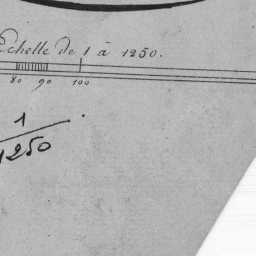 Echelle de 1 à 1250.
80 90 100
1
1250